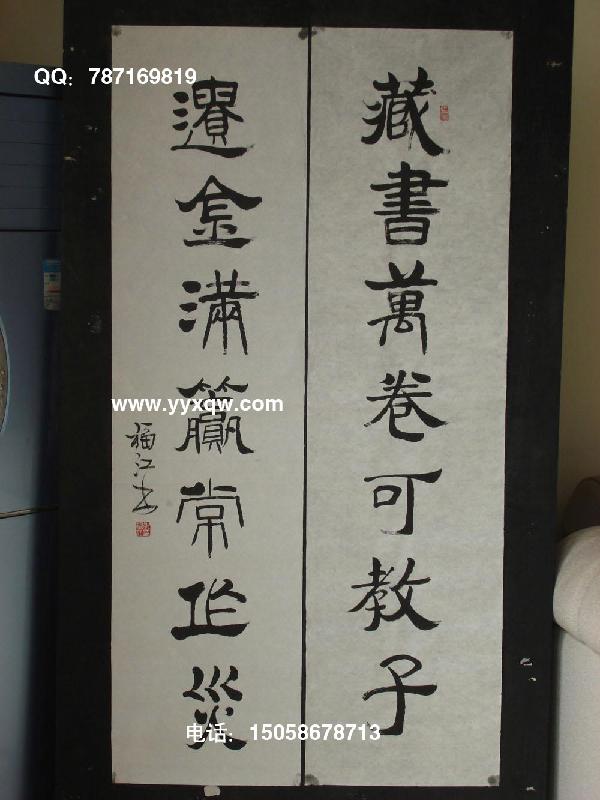 QQ：787169819
藏書萬卷可教子
遺金滿籝常作災
福江书
www.yyxqw.com
电话：15058678713